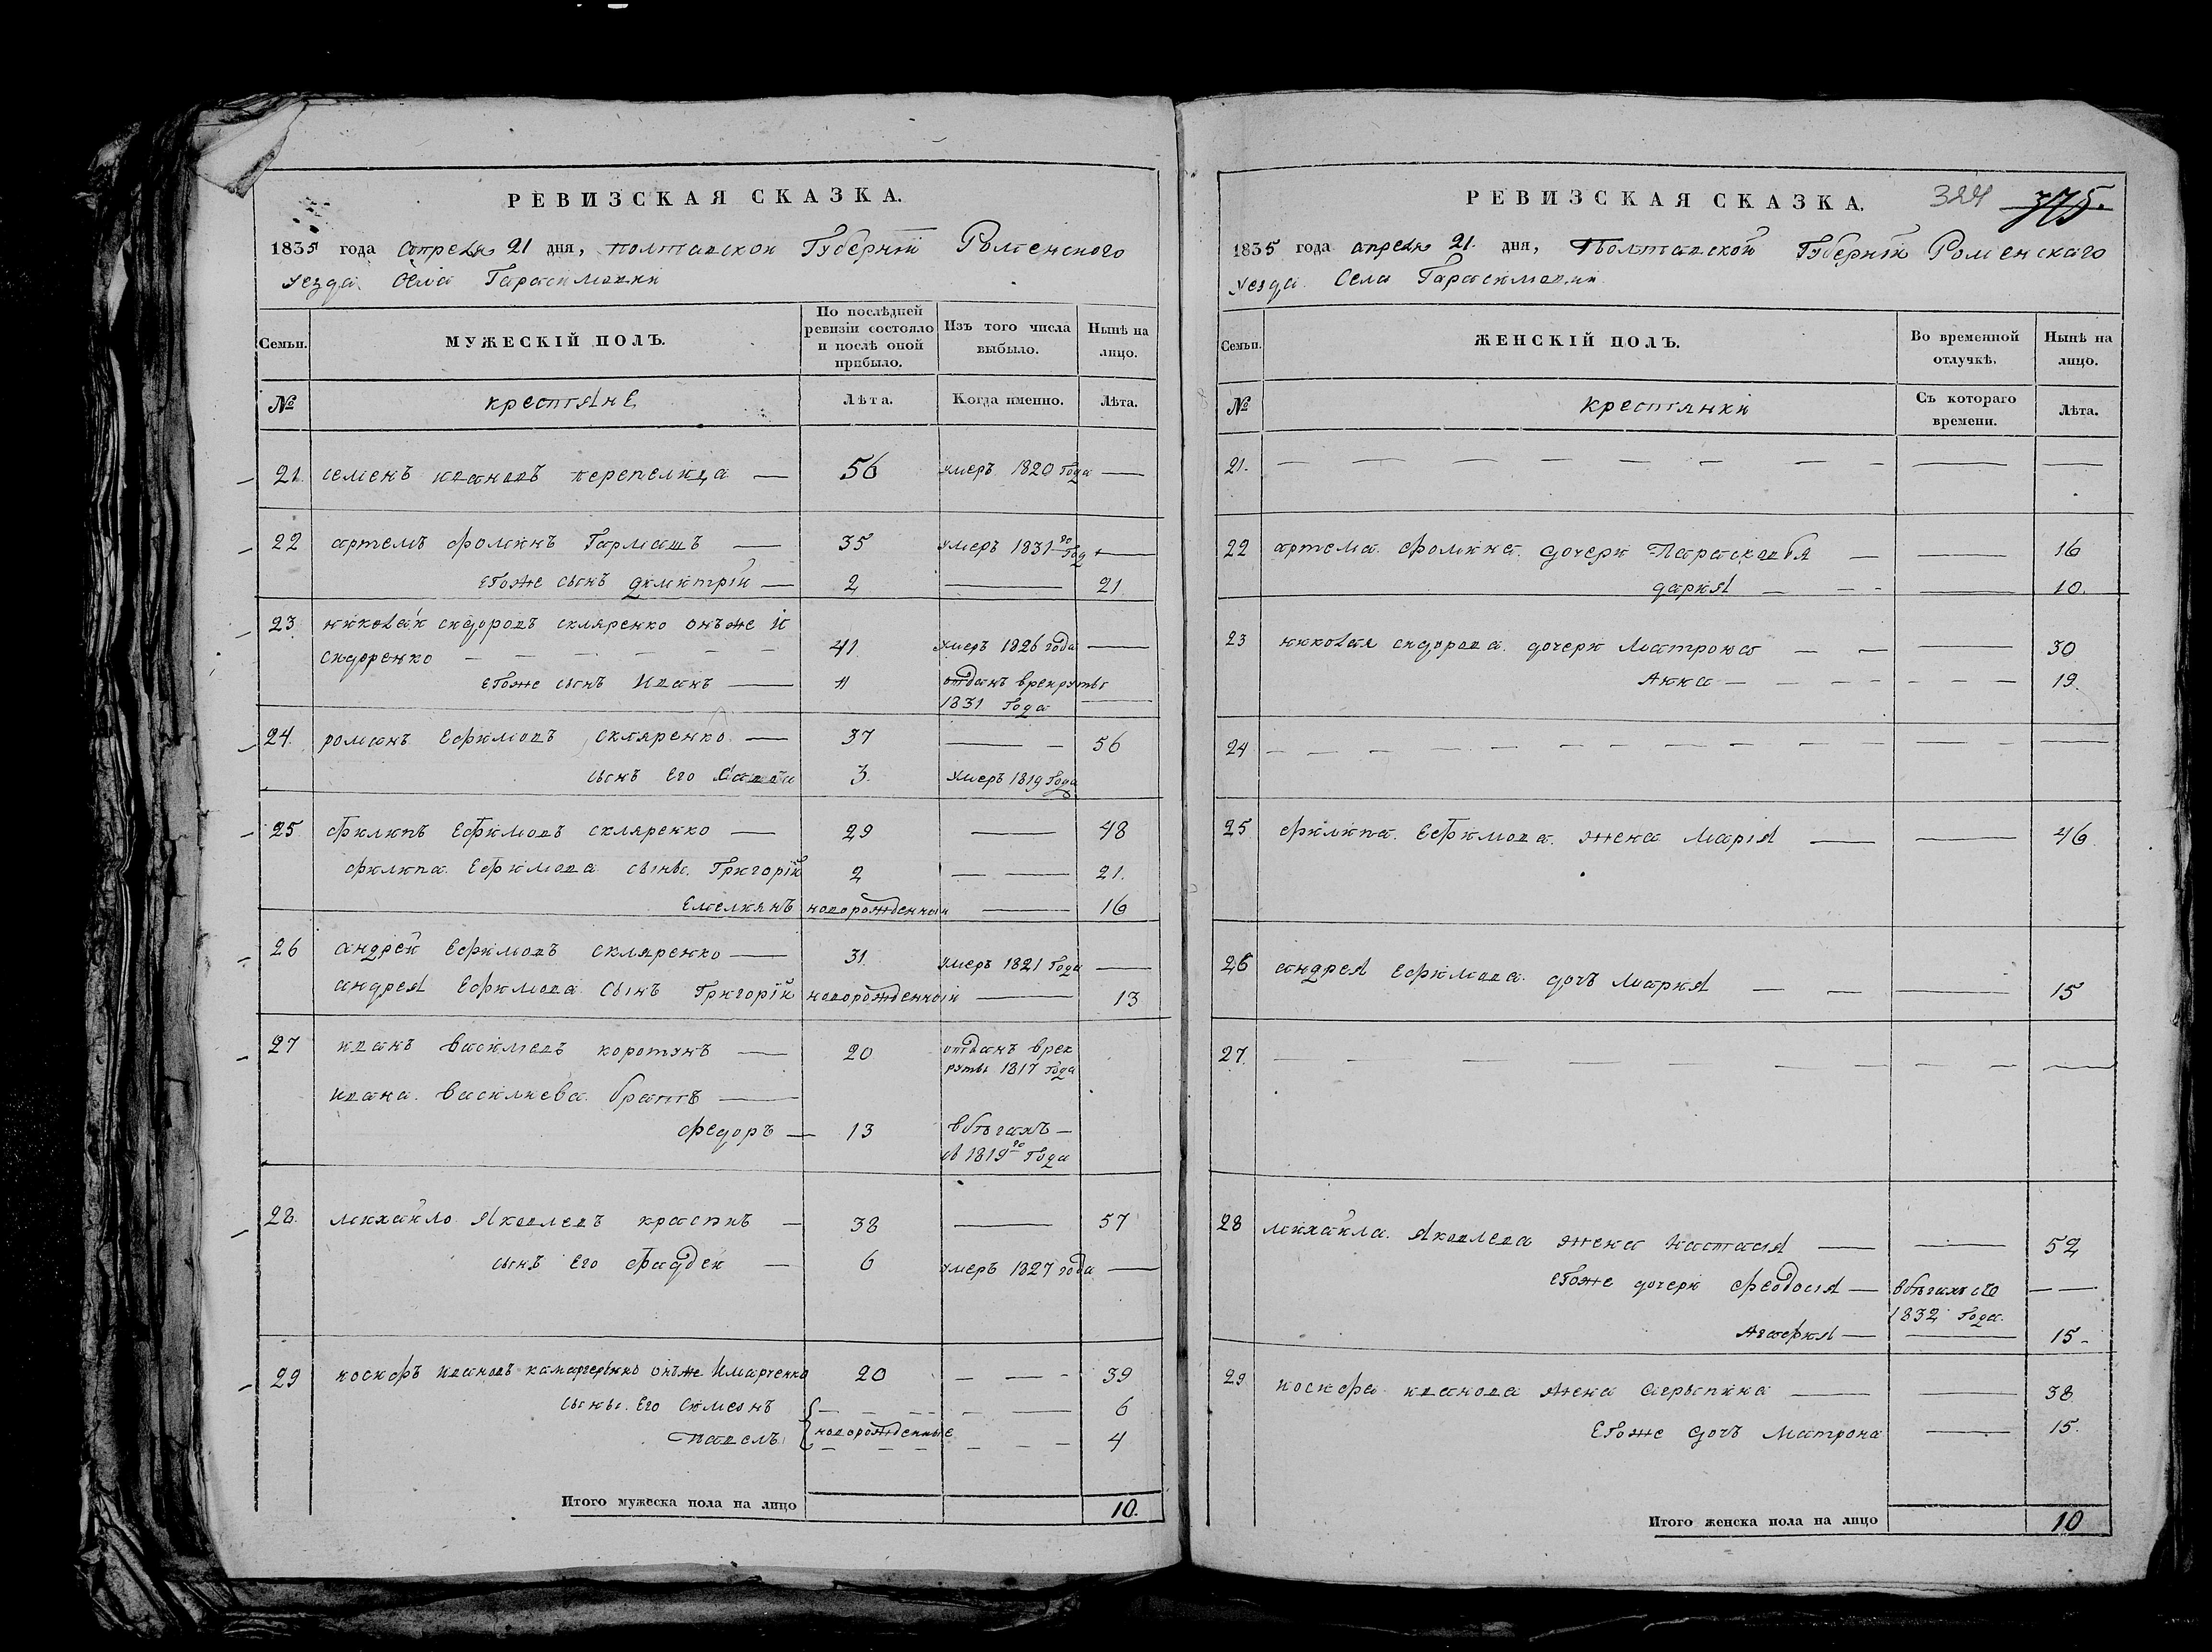 РЕВИЗСКАЯ СКАЗКА.
1835 года апреля 21 дня, полтавской Губернїи Роменского
уезда Села Гарасимовки
Семьи.
МУЖЕСКІЙ ПОЛЪ.
По послѣдней ревизіи состояло и послѣ оной прибыло.
Изъ того числа выбыло.
Нынѣ на лицо.
№ крестьяне Лѣта. Когда именно. Лѣта.
21 семенъ ивановъ перепелица — 56 умеръ 1820 года —
22 артемъ фоминъ Гармашъ — 35 умеръ 1831 го Год —
егоже сынъ димитрїй — 2 — 21
23 николай сидоровъ скляренко онъже И
сидоренко — 41 умеръ 1826 года —
егоже сынъ Иванъ — 11 отданъ врекруты
1831 Года —
24. романъ Ефимовъ скляренко — 37 — 56
сынъ его Савва 3. умеръ 1819 Года
25 филипъ Ефимовъ скляренко — 29 — 48
филипа Ефимова сыны. Григорїй 2 — 21.
Емелиянъ новорожденный — 16
26 андрей Ефимовъ скляренко — 31. умеръ 1821 Года —
андрея Ефимова Сынъ Григорїй новорожденный — 13
27 иванъ васильевъ коротунъ — 20 отданъ врек
руты 1817 года
ивана василиева братъ —
федоръ — 13 вбѣгахъ —
съ 1819 го Года
28. михайло Яковлевъ красинъ — 38 — 57
сынъ его фаддей — 6 умеръ 1827 года —
29 иосифъ ивановъ онъже Имарченко 20 — 39
сыны его симеонъ — 6
новорожденные
павелъ — 4
Итого мужеска пола на лицо 10.
РЕВИЗСКАЯ СКАЗКА. 324 375.
1835 года апреля 21. дня, Полтавской Губернїи Роменскаго
уезда Села Гарасимовки
Семьи.
ЖЕНСКІЙ ПОЛЪ.
Во временной отлучкѣ.
Нынѣ на лицо.
№ крестянки Съ котораго времени. Лѣта.
21. —
22 артема фомина дочери Параскевія — 16
дария — 10.
23 николая сидорова дочери Матрона — 30
Анна — 19.
24 —
25. филипа Ефимова жена Марія — 46
26 андрея Ефимова дочь Мария — 15
27. —
28 михайла Яковлева жена Настасія — 52
егоже дочери феодосія — вбѣгахъ съ
1832 Года. —
Агафия — 15 -
29 иосифа иванова жена — 38
егоже дочь Матрона — 15.
Итого женска пола на лицо 10